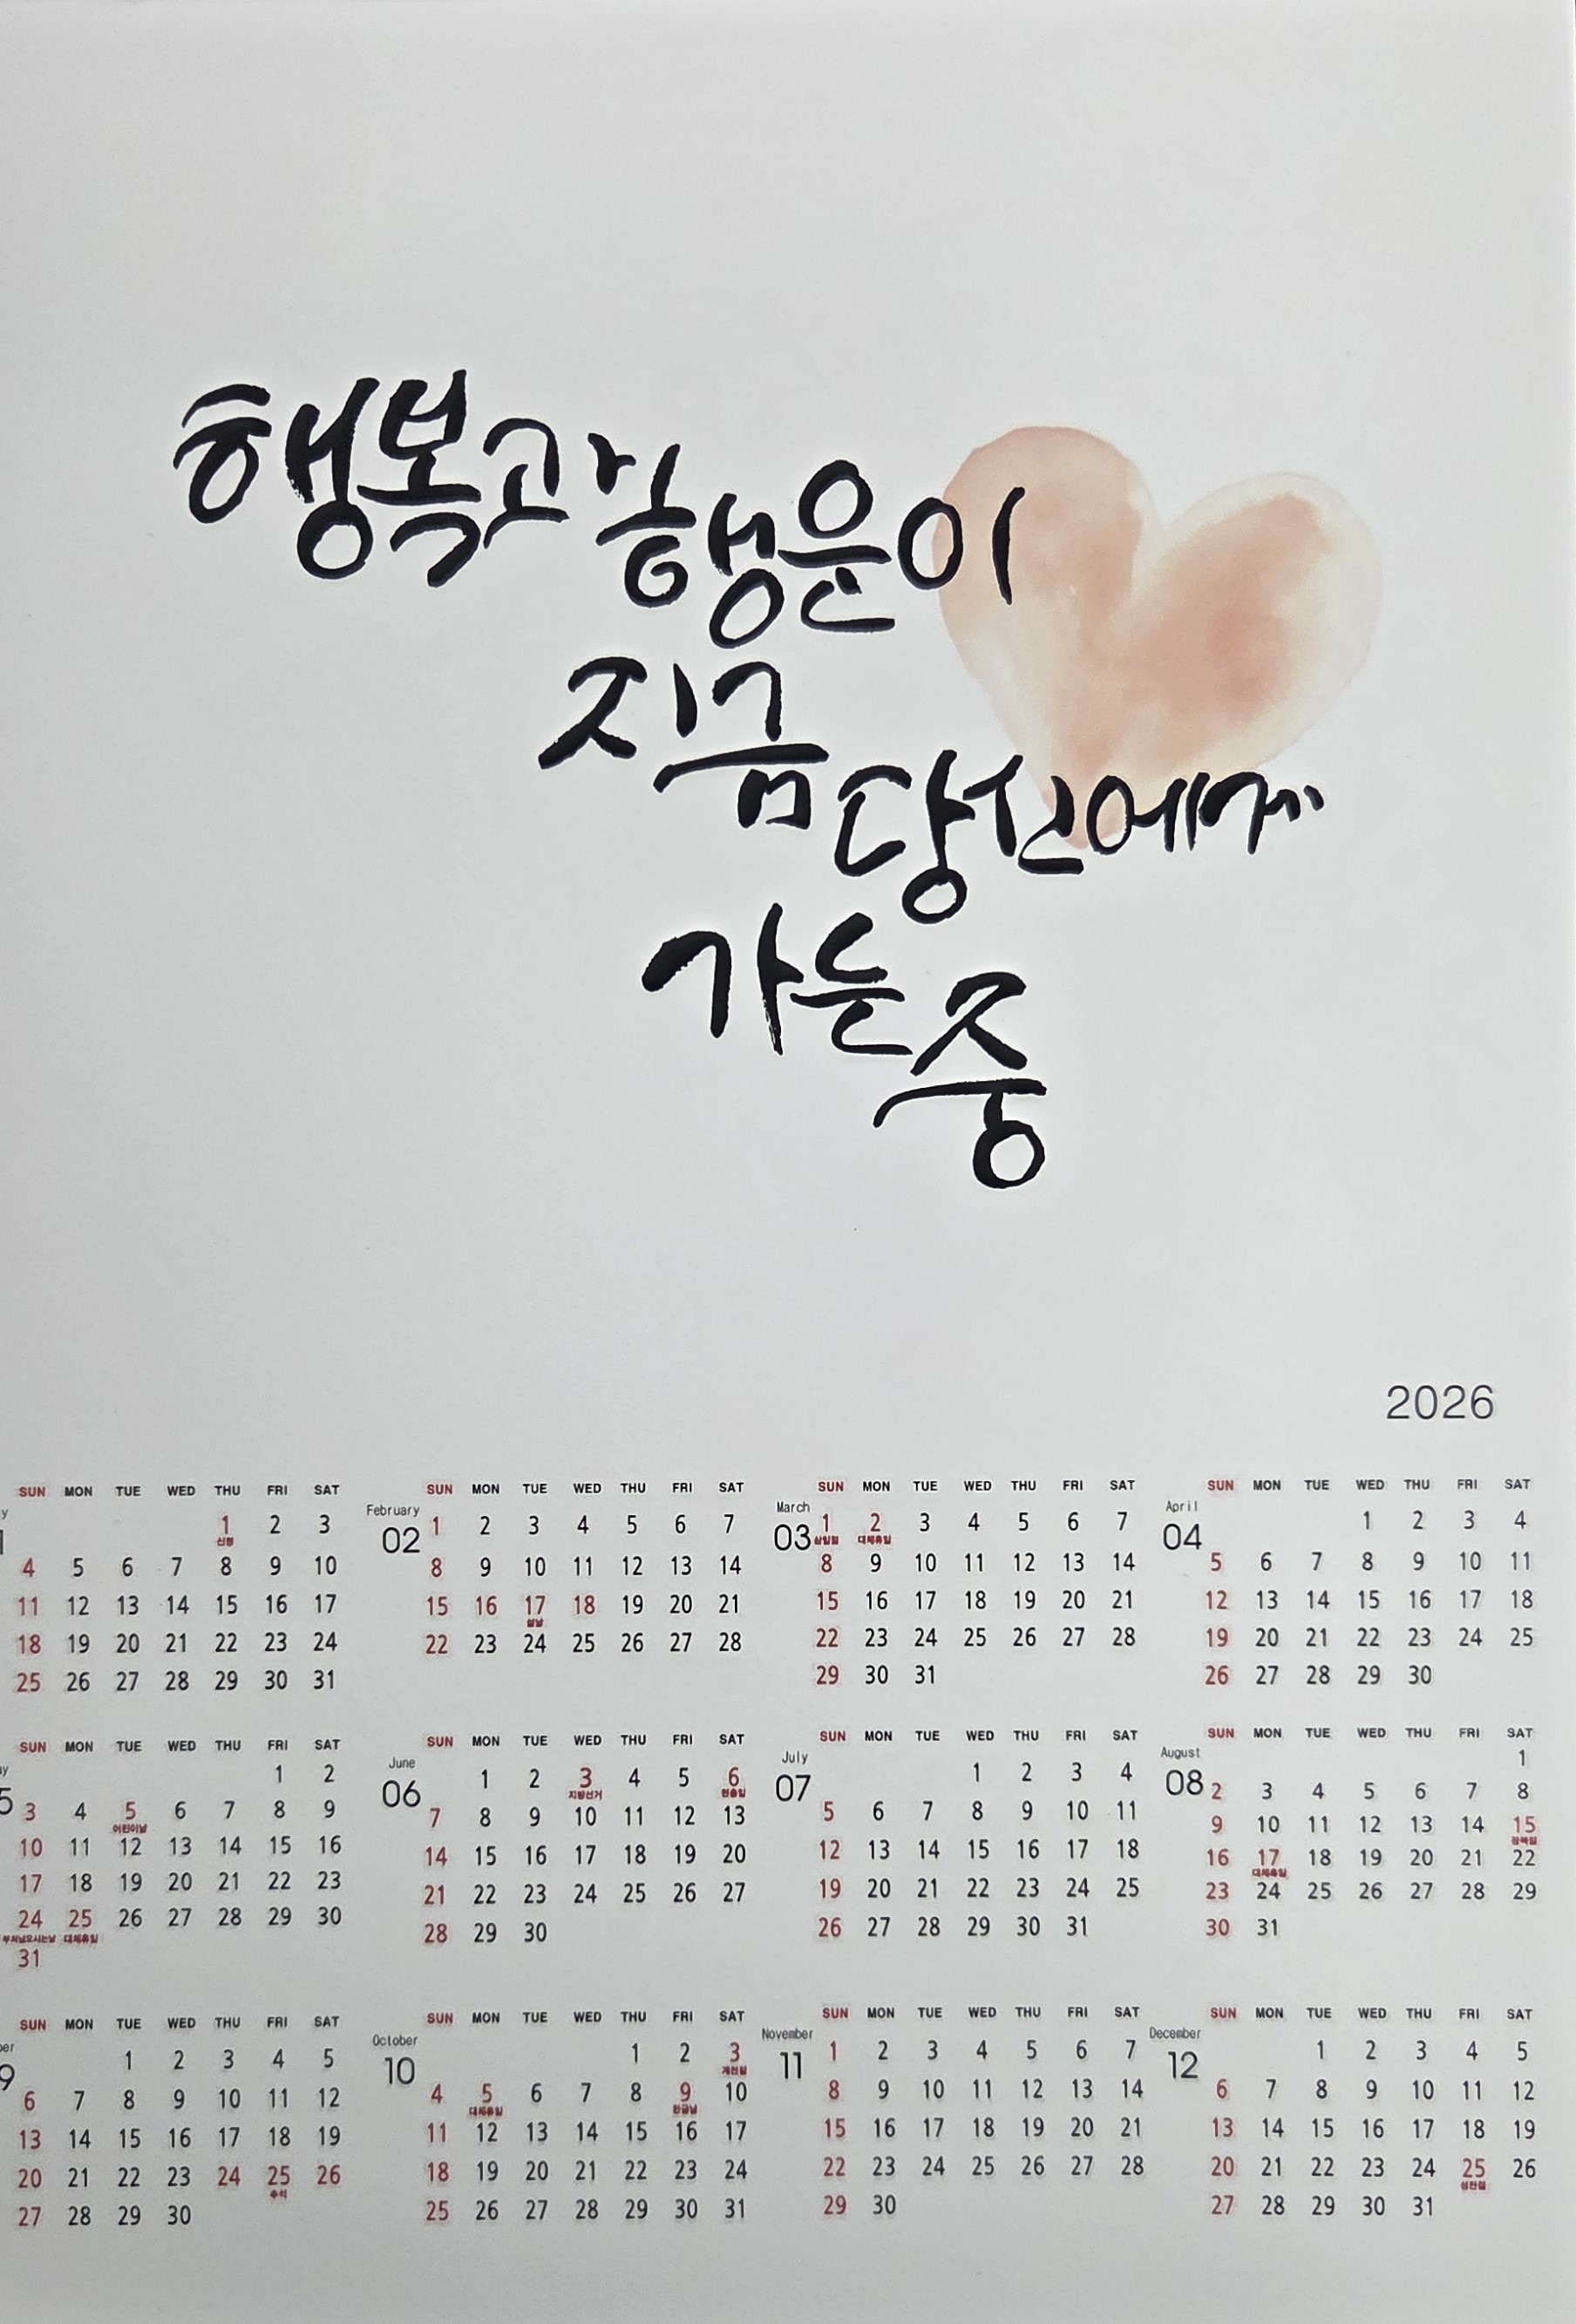 행복과 행운이
지금 당신에게
가는 중
2026
SUN MON TUE WED THU FRI SAT
1 2 3
신정
4 5 6 7 8 9 10
11 12 13 14 15 16 17
18 19 20 21 22 23 24
25 26 27 28 29 30 31
February
02
SUN MON TUE WED THU FRI SAT
1 2 3 4 5 6 7
8 9 10 11 12 13 14
15 16 17 18 19 20 21
설날
22 23 24 25 26 27 28
March
03
SUN MON TUE WED THU FRI SAT
1 2 3 4 5 6 7
삼일절 대체휴일
8 9 10 11 12 13 14
15 16 17 18 19 20 21
22 23 24 25 26 27 28
29 30 31
April
04
SUN MON TUE WED THU FRI SAT
1 2 3 4
5 6 7 8 9 10 11
12 13 14 15 16 17 18
19 20 21 22 23 24 25
26 27 28 29 30
5
SUN MON TUE WED THU FRI SAT
1 2
3 4 5 6 7 8 9
어린이날
10 11 12 13 14 15 16
17 18 19 20 21 22 23
24 25 26 27 28 29 30
부처님오시는날 대체휴일
31
June
06
SUN MON TUE WED THU FRI SAT
1 2 3 4 5 6
지방선거 현충일
7 8 9 10 11 12 13
14 15 16 17 18 19 20
21 22 23 24 25 26 27
28 29 30
July
07
SUN MON TUE WED THU FRI SAT
1 2 3 4
5 6 7 8 9 10 11
12 13 14 15 16 17 18
19 20 21 22 23 24 25
26 27 28 29 30 31
August
08
SUN MON TUE WED THU FRI SAT
1
2 3 4 5 6 7 8
9 10 11 12 13 14 15
광복절
16 17 18 19 20 21 22
대체휴일
23 24 25 26 27 28 29
30 31
9
SUN MON TUE WED THU FRI SAT
1 2 3 4 5
6 7 8 9 10 11 12
13 14 15 16 17 18 19
20 21 22 23 24 25 26
추석
27 28 29 30
October
10
SUN MON TUE WED THU FRI SAT
1 2 3
개천절
4 5 6 7 8 9 10
대체휴일 한글날
11 12 13 14 15 16 17
18 19 20 21 22 23 24
25 26 27 28 29 30 31
November
11
SUN MON TUE WED THU FRI SAT
1 2 3 4 5 6 7
8 9 10 11 12 13 14
15 16 17 18 19 20 21
22 23 24 25 26 27 28
29 30
December
12
SUN MON TUE WED THU FRI SAT
1 2 3 4 5
6 7 8 9 10 11 12
13 14 15 16 17 18 19
20 21 22 23 24 25 26
성탄절
27 28 29 30 31